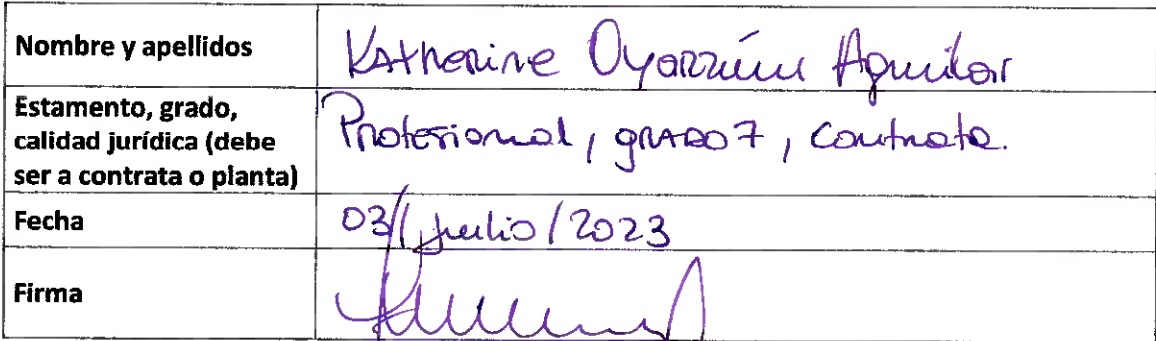 Nombre y apellidos
Katherine Oyarzún Aguilar
Estamento, grado,
calidad jurídica (debe
ser a contrata o planta)
Profesional, grado 7, contrata.
Fecha
03/julio/2023
Firma